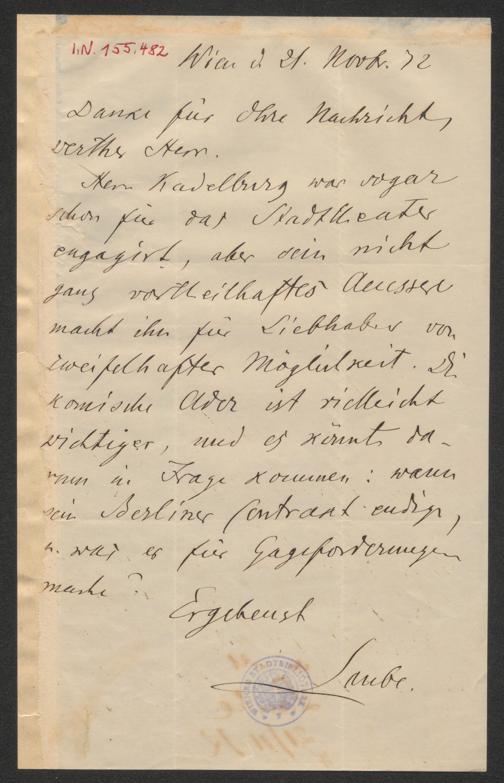 I.N. 155.482
Wien d. 21. Novbr. 72
Danke für Ihre Nachricht,
werther Herr.
Herr Kadelburg war sogar
schon für das Stadttheater
engagirt, aber sein nicht
ganz vortheilhaftes Aeussere
macht ihn für Liebhaber von
zweifelhafter Möglichkeit. Die
komische Ader ist vielleicht
wichtiger, und es könnte da-
rum in Frage kommen: wann
sein Berliner Contract endige,
u. was er für Gageforderungen
mache?
Ergebenst
Laube.